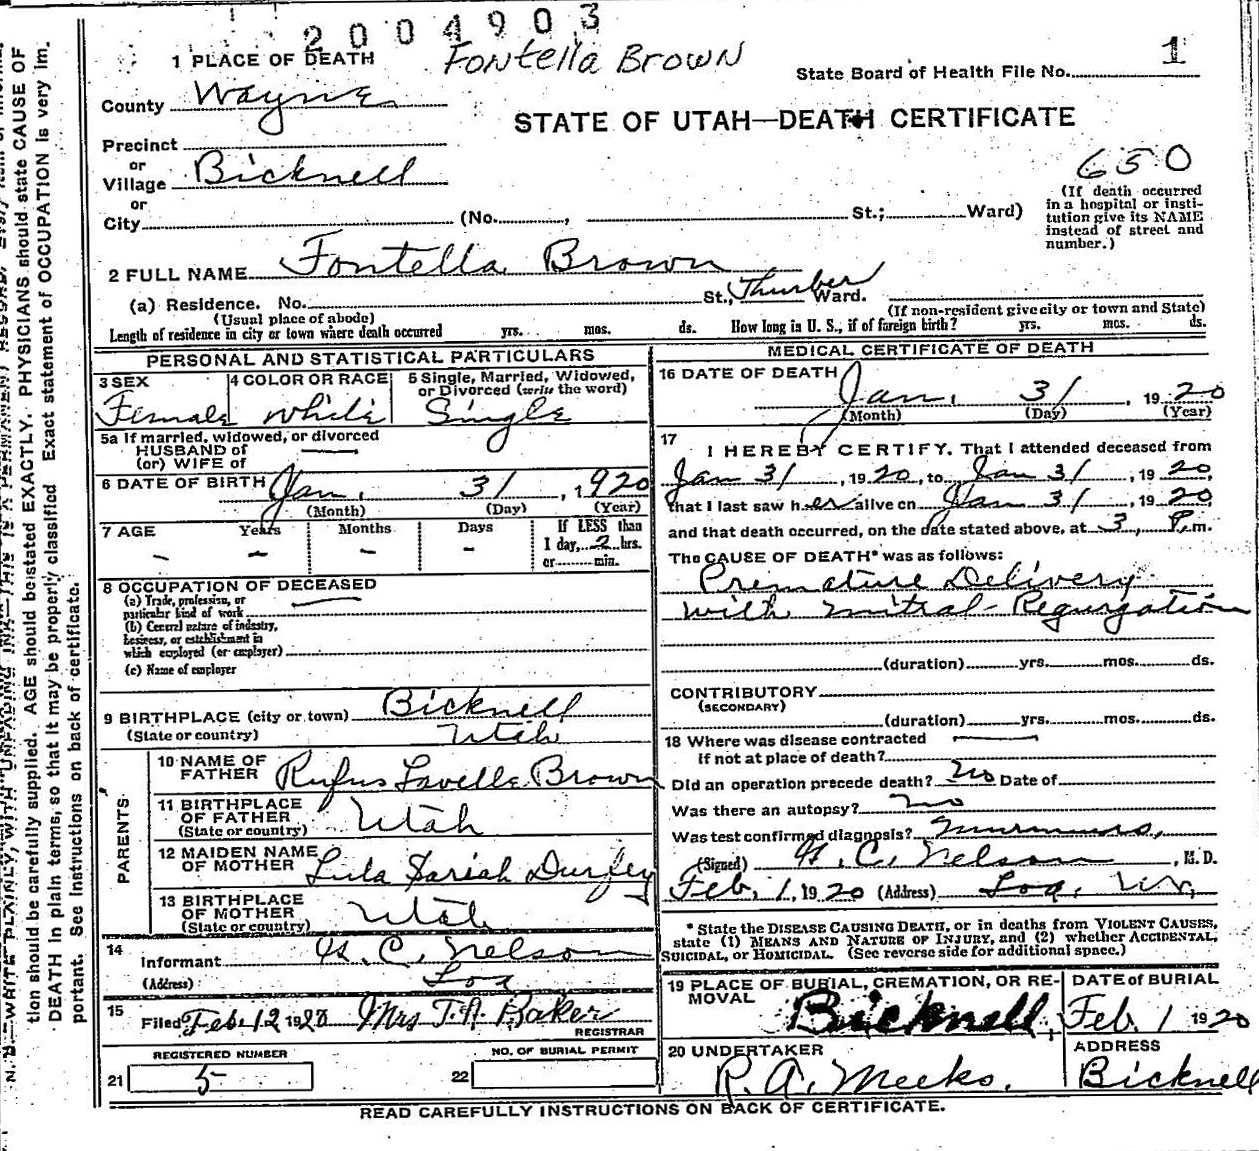 2004903
Fontella Brown
1 PLACE OF DEATH
State Board of Health File No. 1
County Wayne
STATE OF UTAH—DEATH CERTIFICATE
Precinct
or
Village Bicknell
or
City (No. , St.; Ward)
650
(If death occurred
in a hospital or insti-
tution give its NAME
instead of street and
number.)
2 FULL NAME Fontella Brown
(a) Residence. No. St., Thurber Ward.
(Usual place of abode)
(If non-resident give city or town and State)
Length of residence in city or town where death occurred yrs. mos. ds. How long in U. S., if of foreign birth? yrs. mos. ds.
PERSONAL AND STATISTICAL PARTICULARS
3 SEX
Female
4 COLOR OR RACE
White
5 Single, Married, Widowed,
or Divorced (write the word)
Single
5a If married, widowed, or divorced
HUSBAND of
(or) WIFE of
6 DATE OF BIRTH Jan. 31, 1920
(Month) (Day) (Year)
7 AGE Years Months Days
- - - -
If LESS than
1 day, 2 hrs.
or min.
8 OCCUPATION OF DECEASED
(a) Trade, profession, or
particular kind of work
(b) General nature of industry,
business, or establishment in
which employed (or employer)
(c) Name of employer
9 BIRTHPLACE (city or town) Bicknell
(State or country) Utah
PARENTS
10 NAME OF
FATHER Rufus Lavelle Brown
11 BIRTHPLACE
OF FATHER
(State or country) Utah
12 MAIDEN NAME
OF MOTHER Lula Sariah Durfey
13 BIRTHPLACE
OF MOTHER
(State or country) Utah
14
Informant H. C. Nelson
(Address) Loa
15
Filed Feb. 12 1920 Mrs T. A. Baker
REGISTRAR
REGISTERED NUMBER
21 5
NO. OF BURIAL PERMIT
22
MEDICAL CERTIFICATE OF DEATH
16 DATE OF DEATH
Jan. 31, 1920
(Month) (Day) (Year)
17
I HEREBY CERTIFY. That I attended deceased from
Jan 31, 1920, to Jan 31, 1920,
that I last saw her alive on Jan 31, 1920,
and that death occurred, on the date stated above, at 3 P. m.
The CAUSE OF DEATH* was as follows:
Premature Delivery
with mitral-Regurgation
(duration) yrs. mos. ds.
CONTRIBUTORY
(SECONDARY)
(duration) yrs. mos. ds.
18 Where was disease contracted
if not at place of death?
Did an operation precede death? no Date of
Was there an autopsy? no
Was test confirmed diagnosis? murmurs,
(Signed) H. C. Nelson, M. D.
Feb. 1, 1920 (Address) Loa, Ut,
* State the DISEASE CAUSING DEATH, or in deaths from VIOLENT CAUSES,
state (1) MEANS AND NATURE OF INJURY, and (2) whether ACCIDENTAL,
SUICIDAL, or HOMICIDAL. (See reverse side for additional space.)
19 PLACE OF BURIAL, CREMATION, OR RE-
MOVAL Bicknell,
DATE of BURIAL
Feb. 1 1920
20 UNDERTAKER
R. A. Meeks.
ADDRESS
Bicknell
READ CAREFULLY INSTRUCTIONS ON BACK OF CERTIFICATE.
N. B.—WRITE PLAINLY, WITH UNFADING INK—THIS IS A PERMANENT RECORD. Every item of informa-
tion should be carefully supplied. AGE should be stated EXACTLY. PHYSICIANS should state CAUSE OF
DEATH in plain terms, so that it may be properly classified. Exact statement of OCCUPATION is very im-
portant. See instructions on back of certificate.